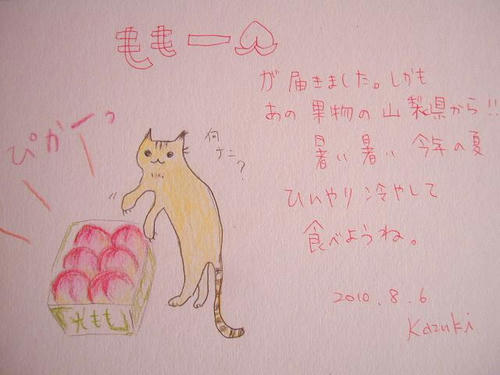 ももー♡
が届きました。しかも
あの果物の山梨県から!!
暑い暑い今年の夏
ひんやり冷やして
食べようね。
2010.8.6
Kazuki
ぴかーっ
何
ナニ?
大もも